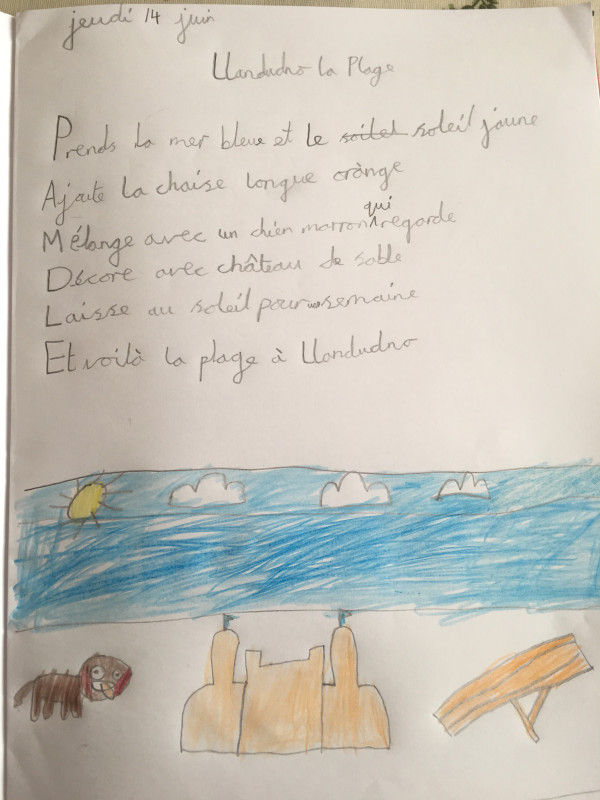 jeudi 14 juin
Llandudno la Plage
Prends la mer bleue et le soilet soleil jaune
Ajoute la chaise longue orànge
Mélange avec un chien marron qui regarde
Décore avec château de sable
Laisse au soleil pour une semaine
Et voilà la plage à Llandudno